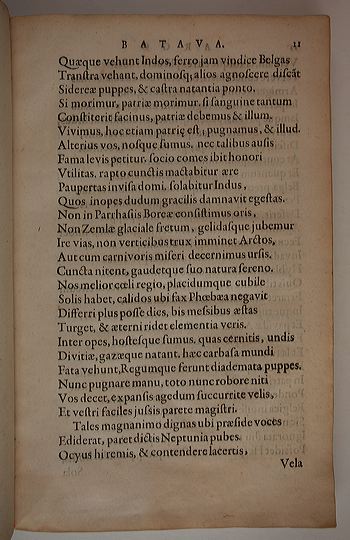 BATAVA. 11
Quæque vehunt Indos, ferro jam vindice Belgas
Transtra vehant, dominosq; alios agnoscere discāt
Sidereæ puppes, & castra natantia ponto.
Si morimur, patriæ morimur, si sanguine tantum
Constiterit facinus, patriæ debemus & illum.
Vivimus, hoc etiam patrię est, pugnamus, & illud.
Alterius vos, nosque sumus, nec talibus ausis
Fama levis petitur, socio comes ibit honori
Vtilitas, rapto cunctis mactabitur ære
Paupertas invisa domi, solabitur Indus,
Quos inopes dudum gracilis damnavit egestas.
Non in Parrhasiis Boreæ consistimus oris,
Non Zemlæ glaciale fretum, gelidasque jubemur
Ire vias, non verticibus trux imminet Arctos,
Aut cum carnivoris miseri decernimus ursis.
Cuncta nitent, gaudetque suo natura sereno.
Nos melior cœli regio, placidumque cubile
Solis habet, calidos ubi fax Phœbæa negavit
Differri plus posse dies, bis messibus æstas
Turget, & æterni ridet clementia veris.
Inter opes, hostesque sumus, quas cernitis, undis
Divitiæ, gazæque natant, hæc carbasa mundi
Fata vehunt, Regumque ferunt diademata puppes.
Nunc pugnare manu, toto nunc robore niti
Vos decet, expansis agedum succurrite velis,
Et vestri faciles jussis parete magistri.
Tales magnanimo dignas ubi præside voces
Ediderat, paret dictis Neptunia pubes.
Ocyus hi remis, & contendere lacertis,
Vela